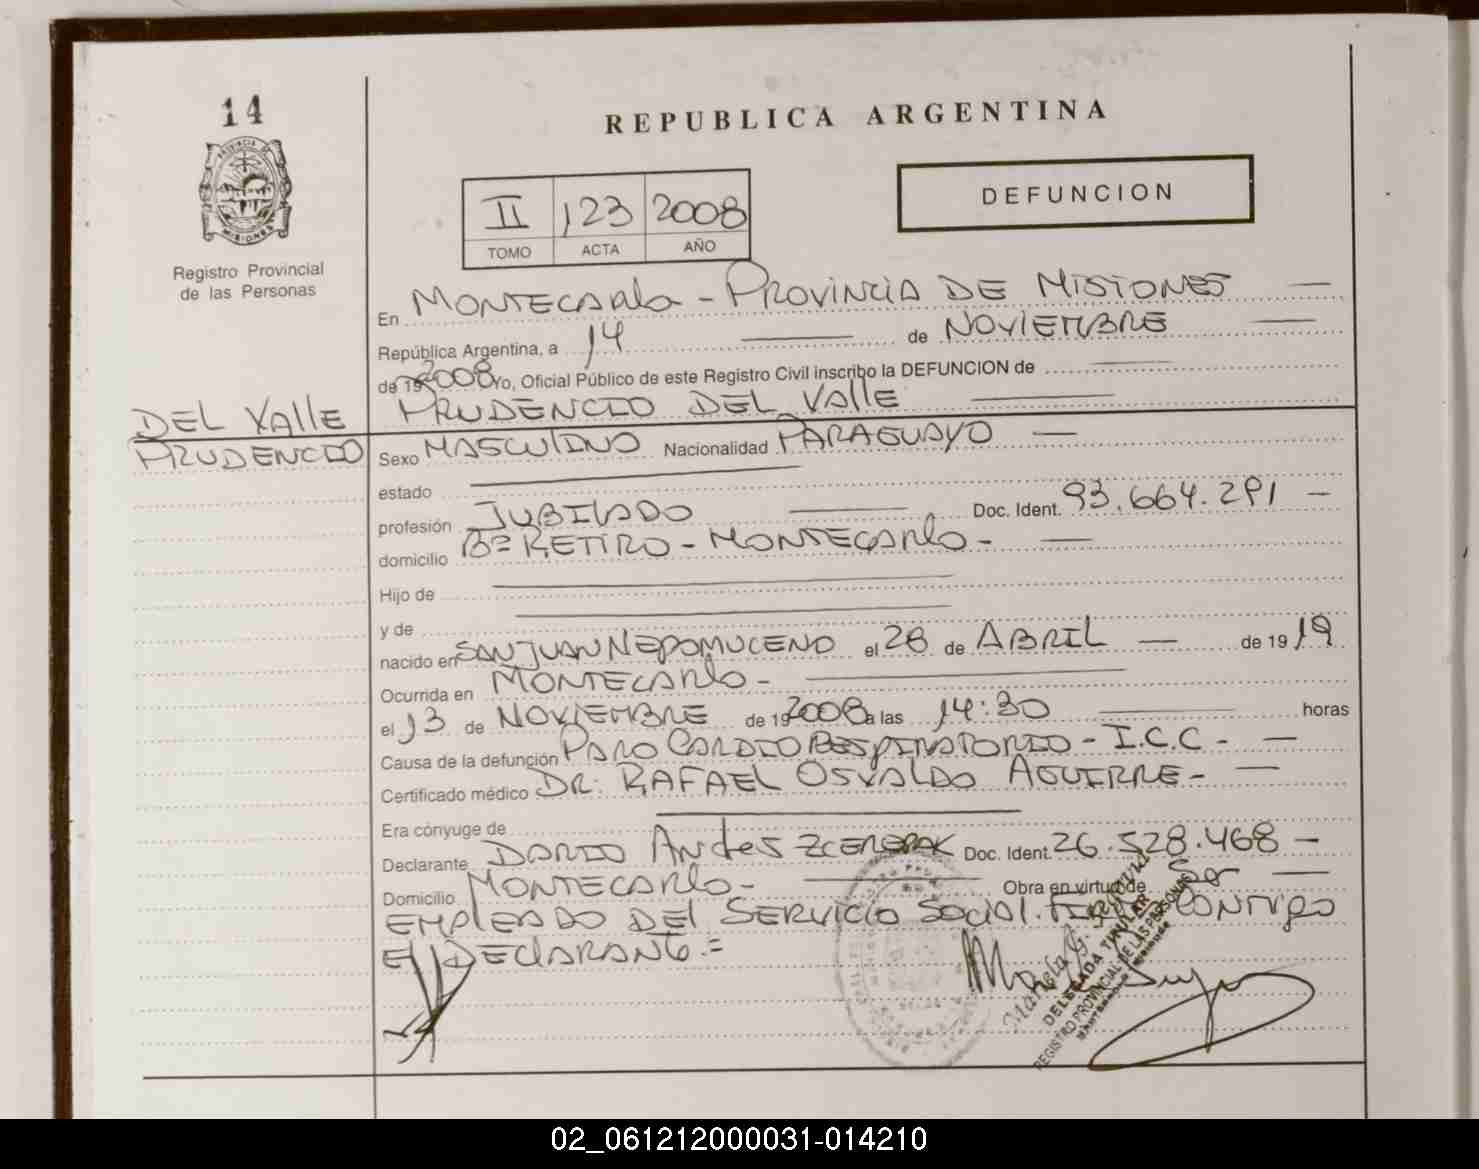 14
PROVINCIA DE
MISIONES
Registro Provincial
de las Personas
REPUBLICA ARGENTINA
II 123 2008
TOMO ACTA AÑO
DEFUNCION
En MONTECARLO - PROVINCIA DE MISIONES
República Argentina, a 14 de NOVIEMBRE
de 19 2008 Yo, Oficial Público de este Registro Civil inscribo la DEFUNCION de
DEL VALLE PRUDENCIO DEL VALLE
PRUDENCIO Sexo MASCULINO Nacionalidad PARAGUAYO
estado
profesión JUBILADO Doc. Ident. 93.664.291
domicilio Bº RETIRO - MONTECARLO -
Hijo de
y de
nacido en SAN JUAN NEPOMUCENO el 28 de ABRIL de 19 19
Ocurrida en MONTECARLO -
el 13 de NOVIEMBRE de 19 2008 a las 14:30 horas
Causa de la defunción PARO CARDIO RESPIRATORIO - I.C.C -
Certificado médico DR. RAFAEL OSVALDO AGUIRRE -
Era cónyuge de
Declarante DARIO Andres Doc. Ident. 26.528.468 -
Domicilio MONTECARLO - Obra en virtud de Ser
EMPLEADO DEL SERVICIO SOCIAL. CONMIGO
El DECLARANTE.=
DELEGADA TITULAR
REGISTRO PROVINCIAL DE LAS PERSONAS
02_061212000031-014210